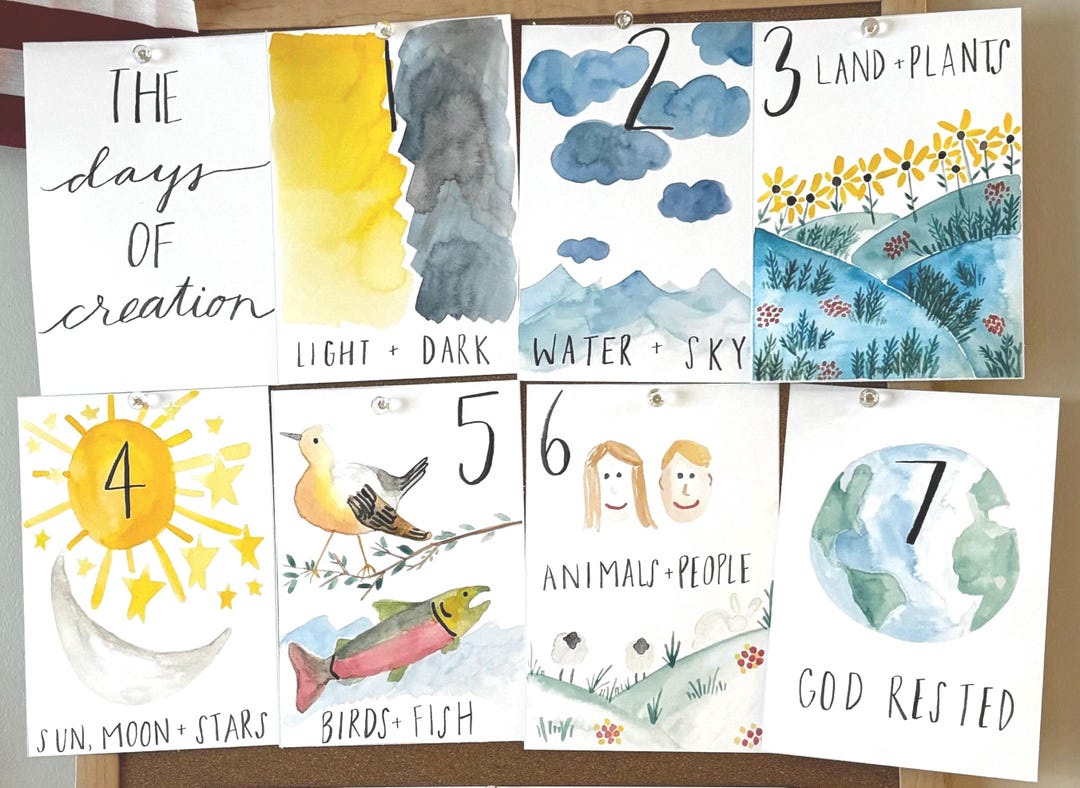 THE
days
OF
creation
1
LIGHT + DARK
2
WATER + SKY
3 LAND + PLANTS
4
SUN, MOON + STARS
5
BIRDS + FISH
6
ANIMALS + PEOPLE
7
GOD RESTED